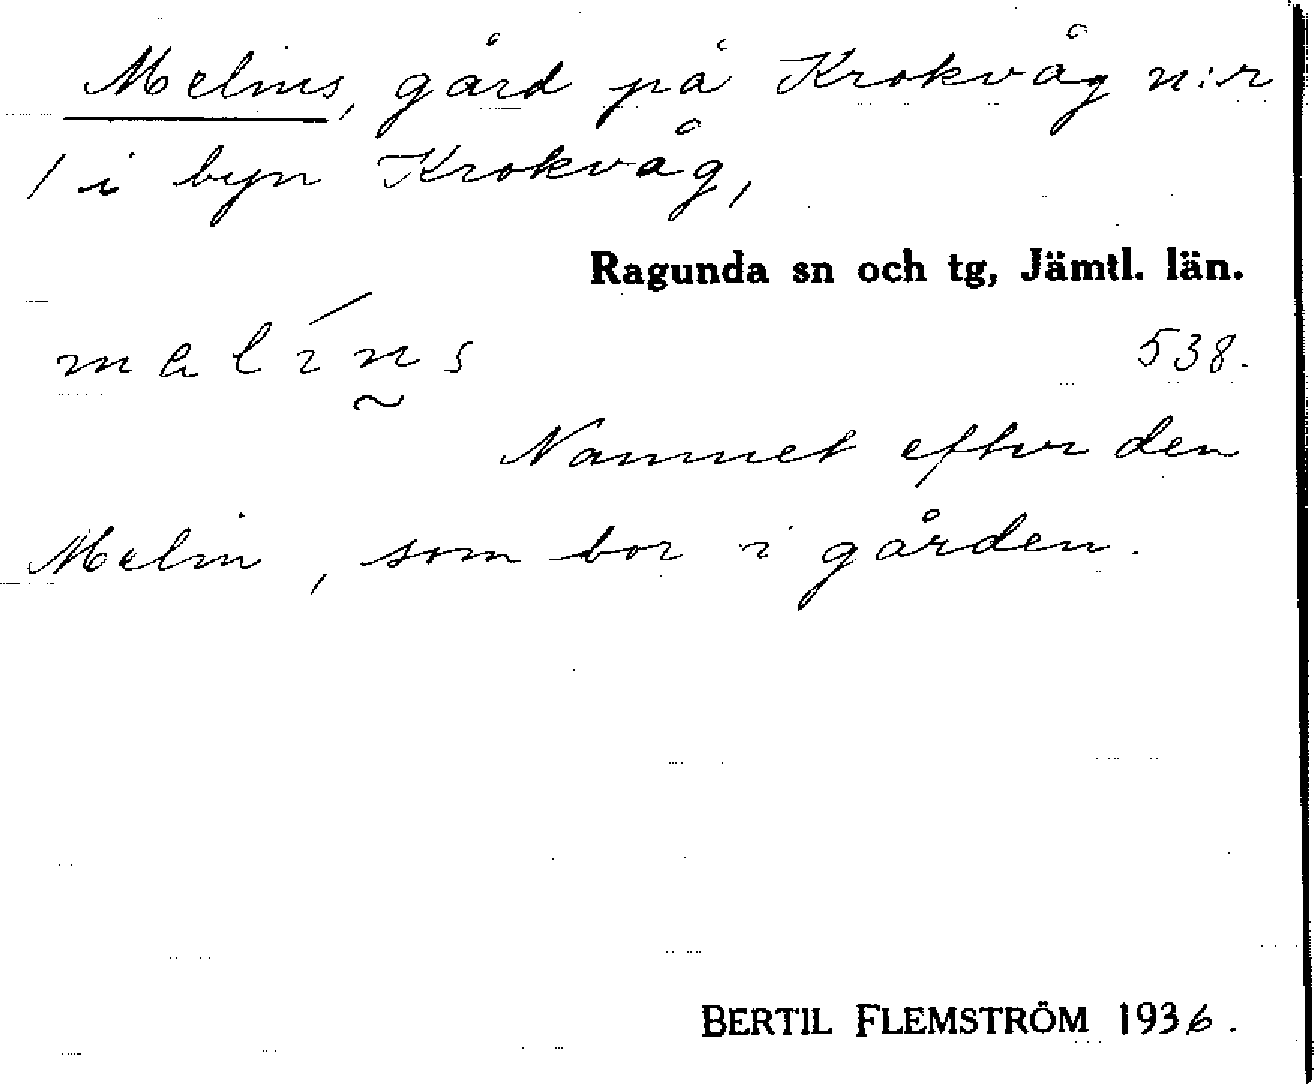 Melins, gård på Krokvåg n:r
1 i byn Krokvåg,
Ragunda sn och tg, Jämtl. län.
melí̄n̰s 538.
Namnet efter den
Melin, som bor i gården.
BERTIL FLEMSTRÖM 1936.